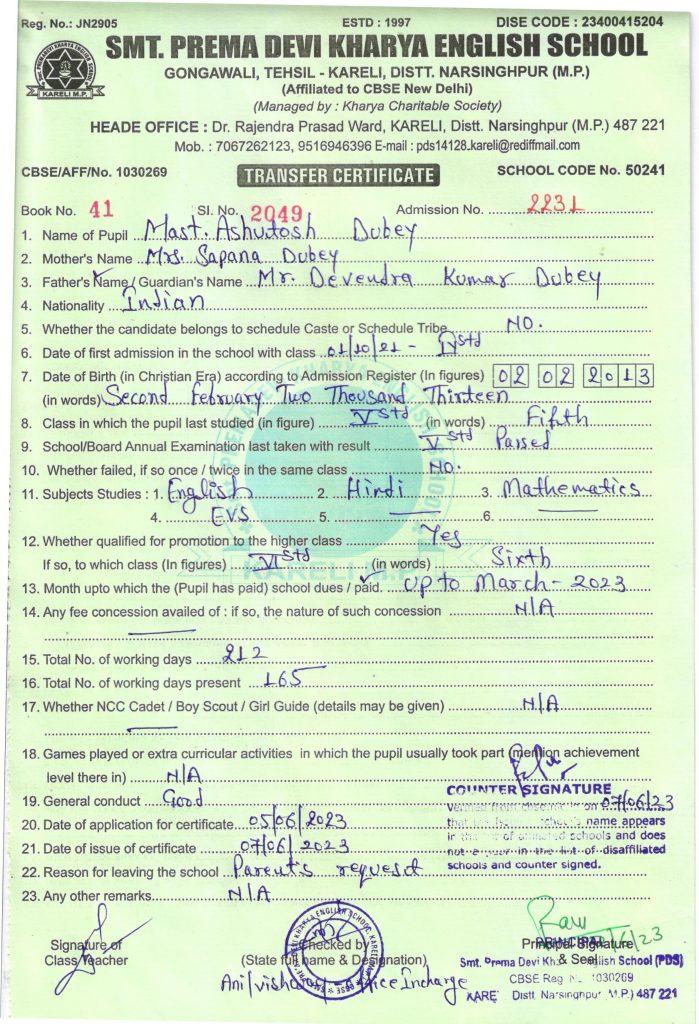 Reg. No.: JN2905 ESTD : 1997 DISE CODE : 23400415204
SMT. PREMA DEVI KHARYA ENGLISH SCHOOL
KARELI M.P.
GONGAWALI, TEHSIL - KARELI, DISTT. NARSINGHPUR (M.P.)
(Affiliated to CBSE New Delhi)
(Managed by : Kharya Charitable Society)
HEADE OFFICE : Dr. Rajendra Prasad Ward, KARELI, Distt. Narsinghpur (M.P.) 487 221
Mob. : 7067262123, 9516946396 E-mail : pds14128.kareli@rediffmail.com
CBSE/AFF/No. 1030269 TRANSFER CERTIFICATE SCHOOL CODE No. 50241
Book No. 41 Sl. No. 2049 Admission No. 2231
1. Name of Pupil Mast. Ashutosh Dubey
2. Mother's Name Mrs. Sapana Dubey
3. Father's Name / Guardian's Name Mr. Devendra Kumar Dubey
4. Nationality Indian
5. Whether the candidate belongs to schedule Caste or Schedule Tribe NO.
6. Date of first admission in the school with class 01/10/21 - std
7. Date of Birth (in Christian Era) according to Admission Register (In figures) 02 02 2013
(in words) Second February Two Thousand Thirteen
8. Class in which the pupil last studied (in figure) V std (in words) Fifth
9. School/Board Annual Examination last taken with result V std Passed
10. Whether failed, if so once / twice in the same class NO.
11. Subjects Studies : 1. English 2. Hindi 3. Mathematics
4. EVS 5. 6.
12. Whether qualified for promotion to the higher class Yes
If so, to which class (In figures) VI std (in words) Sixth
KARELI M.P.
13. Month upto which the (Pupil has paid) school dues / paid. up to March - 2023
14. Any fee concession availed of : if so, the nature of such concession N/A
15. Total No. of working days 212
16. Total No. of working days present 165
17. Whether NCC Cadet / Boy Scout / Girl Guide (details may be given) N/A
18. Games played or extra curricular activities in which the pupil usually took part (mention achievement
level there in) N/A
COUNTER SIGNATURE
19. General conduct Good
on 07/06/23
20. Date of application for certificate 05/06/2023
name appears
21. Date of issue of certificate 07/06/2023
in the list of schools and does
not in the list of disaffiliated
22. Reason for leaving the school Parent's request
schools and counter signed.
23. Any other remarks N/A
Signature of
Class Teacher
Checked by
(State full name & Designation)
Office Incharge
Principal Signature
& Seel
PRINCIPAL
Smt. Prema Devi English School (PDS)
CBSE Reg No 1030269
KARE Distt. Narsinghpur M.P.) 487 221